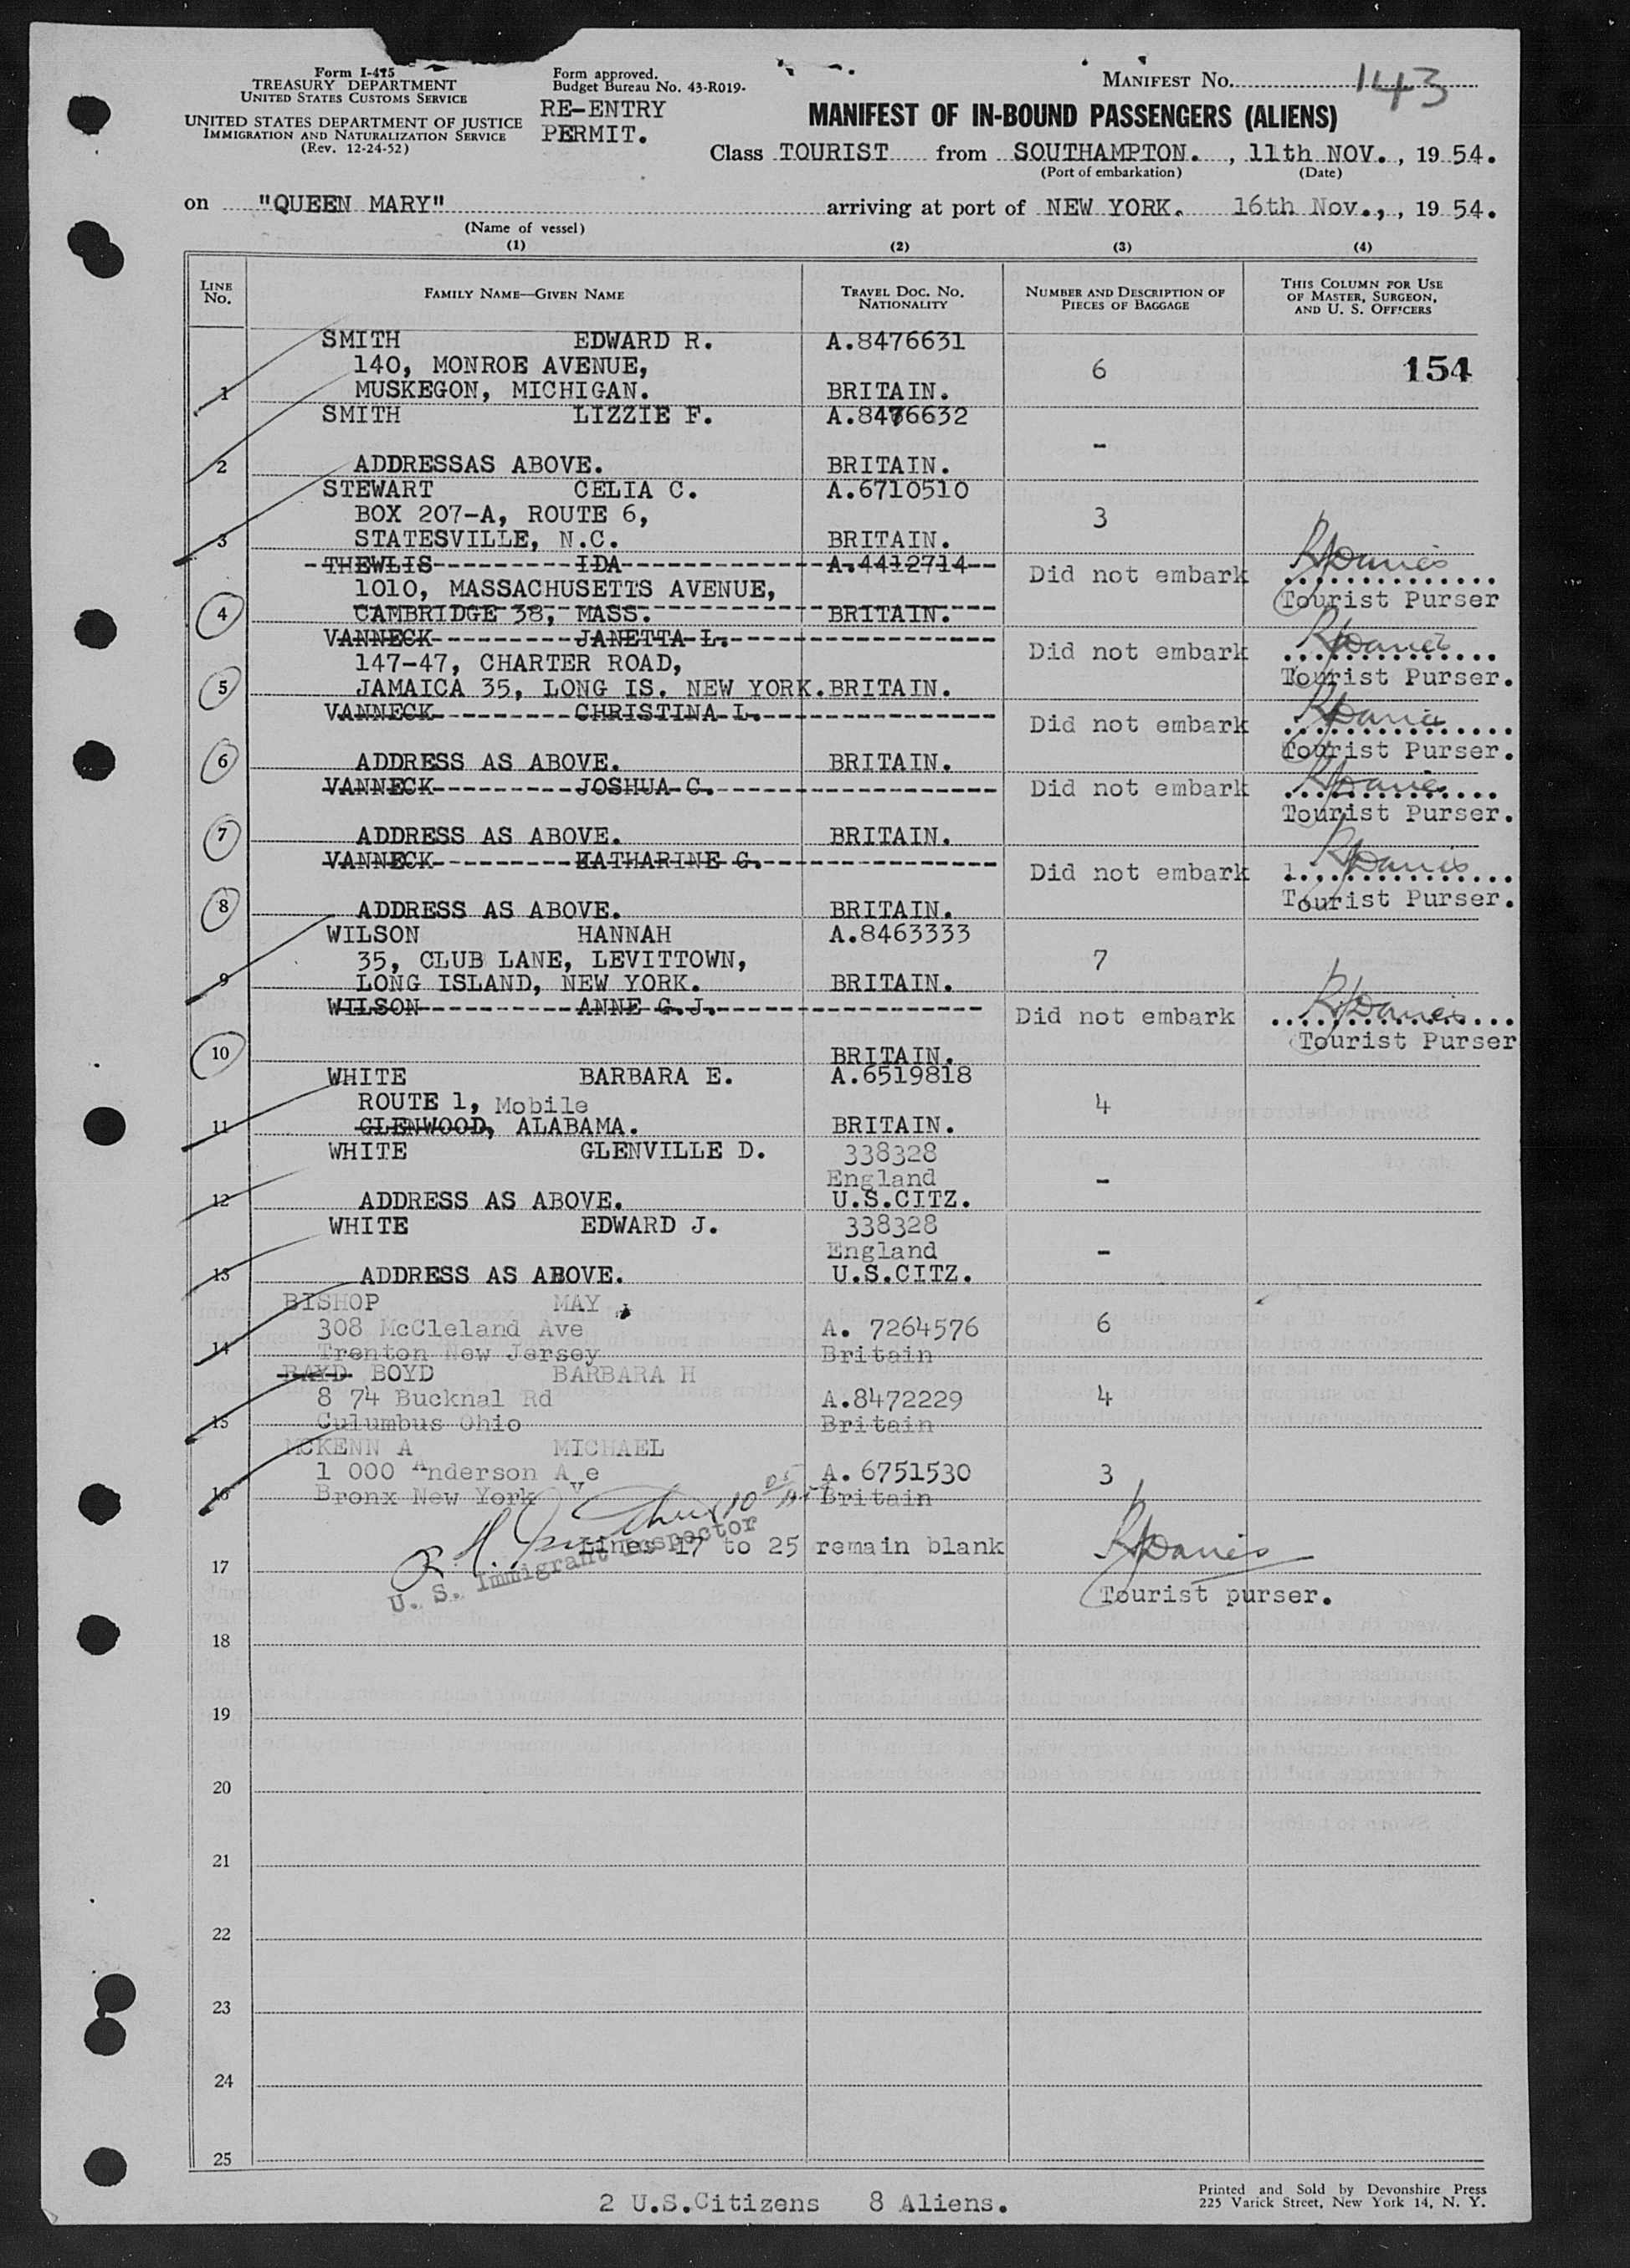 Form I-415
TREASURY DEPARTMENT
UNITED STATES CUSTOMS SERVICE
UNITED STATES DEPARTMENT OF JUSTICE
IMMIGRATION AND NATURALIZATION SERVICE
(Rev. 12-24-52)
Form approved.
Budget Bureau No. 43-R019-
RE-ENTRY
PERMIT.
MANIFEST No. 143
MANIFEST OF IN-BOUND PASSENGERS (ALIENS)
Class TOURIST from SOUTHAMPTON. , 11th NOV. , 19 54.
(Port of embarkation) (Date)
on "QUEEN MARY" arriving at port of NEW YORK. 16th Nov., , 19 54.
(Name of vessel)
(1) (2) (3) (4)
LINE No. FAMILY NAME—GIVEN NAME TRAVEL DOC. NO. NATIONALITY NUMBER AND DESCRIPTION OF PIECES OF BAGGAGE THIS COLUMN FOR USE OF MASTER, SURGEON, AND U. S. OFFICERS
SMITH EDWARD R. A.8476631
140, MONROE AVENUE, 6 154
1 MUSKEGON, MICHIGAN. BRITAIN.
SMITH LIZZIE F. A.8476632
-
2 ADDRESSAS ABOVE. BRITAIN.
STEWART CELIA C. A.6710510
BOX 207-A, ROUTE 6, 3
3 STATESVILLE, N.C. BRITAIN.
THEWLIS IDA A.4412714
1010, MASSACHUSETTS AVENUE, Did not embark Tourist Purser
4 CAMBRIDGE 38, MASS. BRITAIN.
VANNECK JANETTA L.
147-47, CHARTER ROAD, Did not embark Tourist Purser.
5 JAMAICA 35, LONG IS. NEW YORK. BRITAIN.
VANNECK CHRISTINA L.
Did not embark Tourist Purser.
6 ADDRESS AS ABOVE. BRITAIN.
VANNECK JOSHUA C.
Did not embark Tourist Purser.
7 ADDRESS AS ABOVE. BRITAIN.
VANNECK KATHARINE G.
Did not embark Tourist Purser.
8 ADDRESS AS ABOVE. BRITAIN.
WILSON HANNAH A.8463333
35, CLUB LANE, LEVITTOWN, 7
9 LONG ISLAND, NEW YORK. BRITAIN.
WILSON ANNE G.J.
Did not embark Tourist Purser
10 BRITAIN.
WHITE BARBARA E. A.6519818
ROUTE 1, Mobile 4
11 GLENWOOD, ALABAMA. BRITAIN.
WHITE GLENVILLE D. 338328
England -
12 ADDRESS AS ABOVE. U.S.CITZ.
WHITE EDWARD J. 338328
England -
13 ADDRESS AS ABOVE. U.S.CITZ.
BISHOP MAY
308 McCleland Ave A. 7264576 6
14 Trenton New Jersey Britain
BAYD BOYD BARBARA H
8 74 Bucknal Rd A.8472229 4
15 Culumbus Ohio Britain
MCKENN A MICHAEL
1 000 Anderson Ave A. 6751530 3
16 Bronx New York Britain
Lines 17 to 25 remain blank
U. S. Immigrant Inspector
17 Tourist purser.
18
19
20
21
22
23
24
25
2 U.S.Citizens 8 Aliens.
Printed and Sold by Devonshire Press
225 Varick Street, New York 14, N. Y.